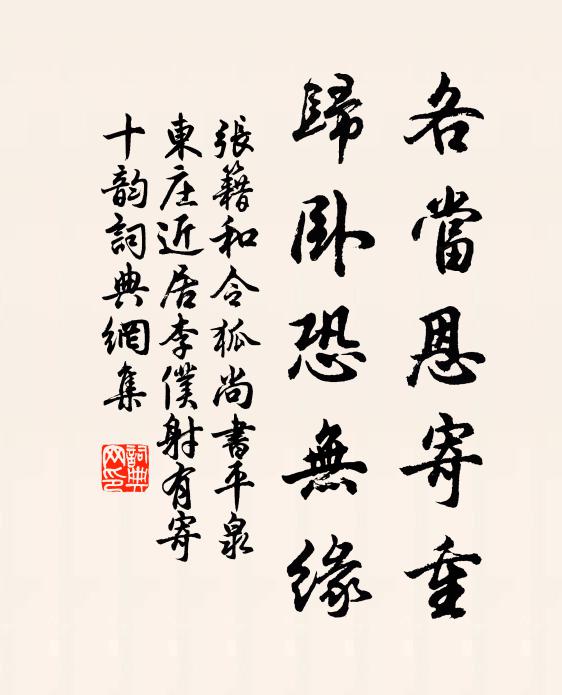 各當恩寄重
歸臥恐無緣
張籍和令狐尚書平泉
東庄近居李僕射有寄
十韵詞典網集
詞典网印